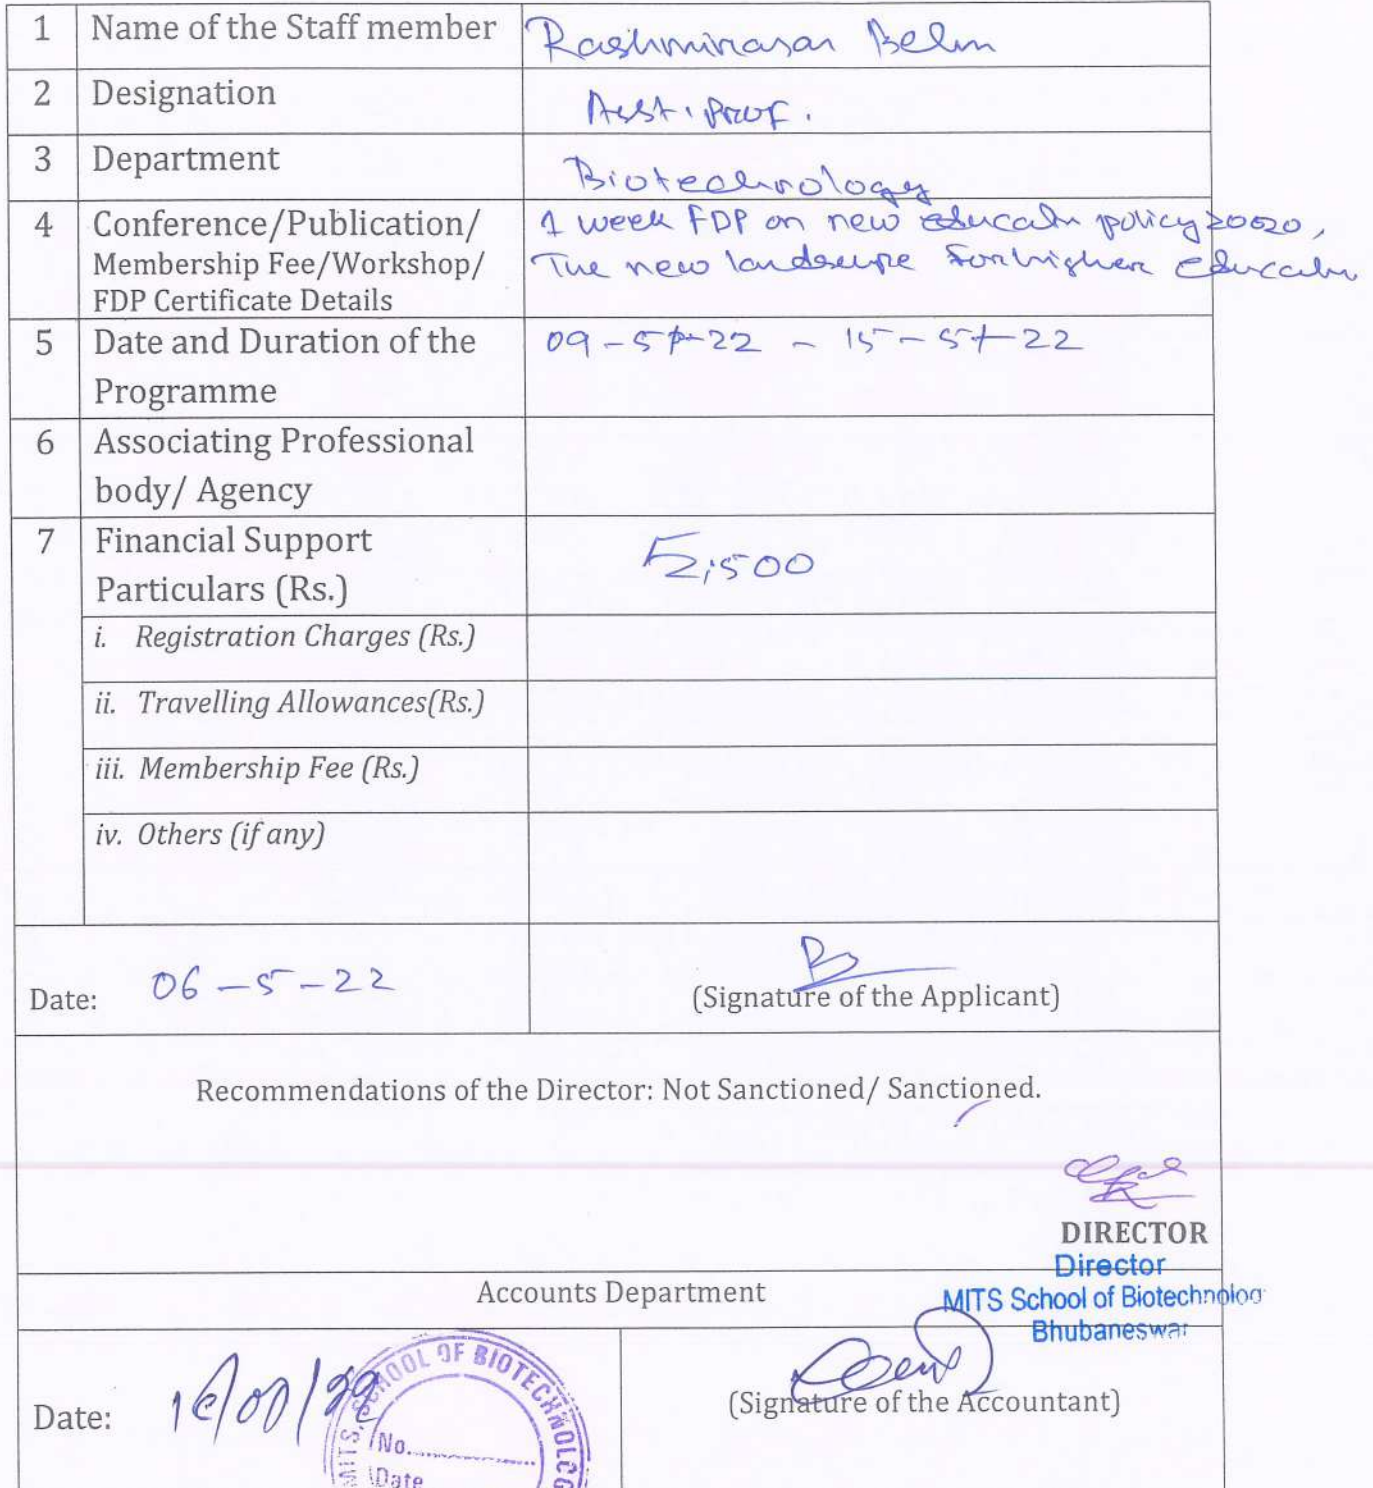 1 Name of the Staff member Rashmirasan Belm
2 Designation Asst. Prof.
3 Department Biotechnology
4 Conference/Publication/ 1 week FDP on new educatn policy 20020,
Membership Fee/Workshop/ The new landscupe for higher educatn
FDP Certificate Details
5 Date and Duration of the 09-5-22 - 15-5-22
Programme
6 Associating Professional
body/ Agency
7 Financial Support 2,500
Particulars (Rs.)
i. Registration Charges (Rs.)
ii. Travelling Allowances(Rs.)
iii. Membership Fee (Rs.)
iv. Others (if any)
Date: 06-5-22
(Signature of the Applicant)
Recommendations of the Director: Not Sanctioned/ Sanctioned.
DIRECTOR
Director
MITS School of Biotechnolog
Bhubaneswar
Accounts Department
Date:
MITS, SCHOOL OF BIOTECHNOLOG
No.
Date
(Signature of the Accountant)